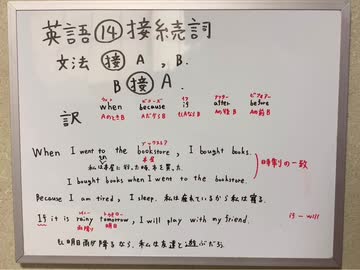 英語⑭接続詞
文法 接 A , B.
B 接 A.
ウェン ビコーズ イフ アフター ビフォアー
訳 when because if after before
AのときB AだからB もしAならB Aの後B Aの前B
ブックストア
When I went to the bookstore , I bought books.
本屋
私は本屋に行った時、本を買った。
時制の一致
I bought books when I went to the bookstore.
Because I am tired , I sleep. 私は疲れているから私は寝る。
レイニー トゥモロー
If it is rainy tomorrow , I will play with my friend. if - will
雨降り 明日
もし明日雨が降るなら、私は友達と遊ぶだろう。